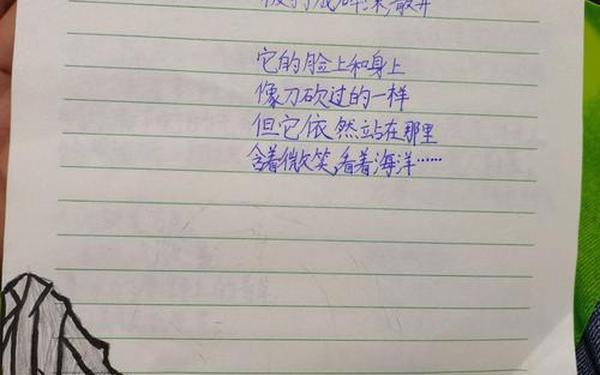 它的脸上和身上
像刀砍过的一样
但它依然站在那里
含着微笑,看着海洋……